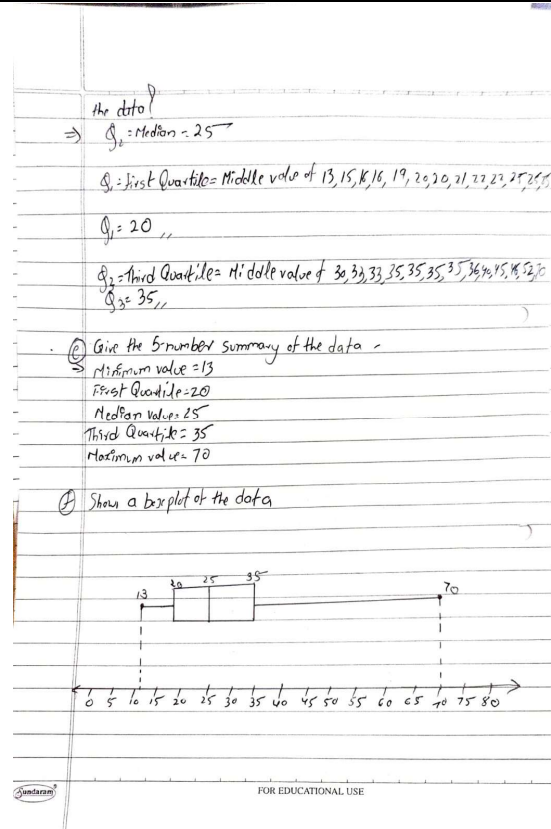 the data?
⇒ Q₂ = Median = 25
Q₁ = First Quartile = Middle value of 13, 15, 16, 16, 19, 20, 20, 21, 22, 22, 25, 25,
Q₁ = 20 ,,
Q₃ = Third Quartile = Middle value of 30, 33, 33, 35, 35, 35, 35, 36, 40, 45, 46, 52, 70
Q₃ = 35,,
(e) Give the 5-number summary of the data -
⇒ Minimum value = 13
First Quartile = 20
Median value = 25
Third Quartile = 35
Maximum value = 70
(f) Show a boxplot of the data
13 20 25 35 70
0 5 10 15 20 25 30 35 40 45 50 55 60 65 70 75 80
Sundaram FOR EDUCATIONAL USE